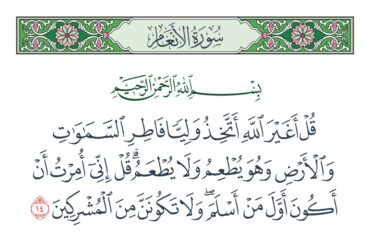 سُورَةُ الأَنْعَامِ
بِسْمِ اللَّهِ الرَّحْمَٰنِ الرَّحِيمِ
قُلْ أَغَيْرَ اللَّهِ أَتَّخِذُ وَلِيًّا فَاطِرِ السَّمَٰوَٰتِ
وَالْأَرْضِ وَهُوَ يُطْعِمُ وَلَا يُطْعَمُ ۗ قُلْ إِنِّي أُمِرْتُ أَنْ
أَكُونَ أَوَّلَ مَنْ أَسْلَمَ ۖ وَلَا تَكُونَنَّ مِنَ الْمُشْرِكِينَ ١٤